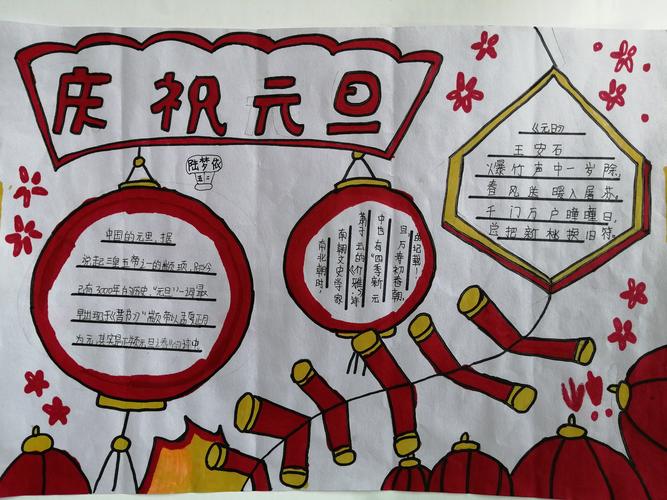 庆祝元旦
陆梦依
五二
中国的元旦,据
说起三皇五帝之一的颛顼,距今
已有3000年的历史,"元旦"一词最
早出现于《晋书》"颛帝以孟夏正月
为元,其实是正朔元旦之春"的诗中
南北朝时,
南朝文史学家
萧子云的《介雅》诗
中也有"四季新元
旦,万寿初春朝。
记载!
《元日》
王安石
爆竹声中一岁除,
春风送暖入屠苏.
千门万户瞳瞳日,
总把新桃换旧符.